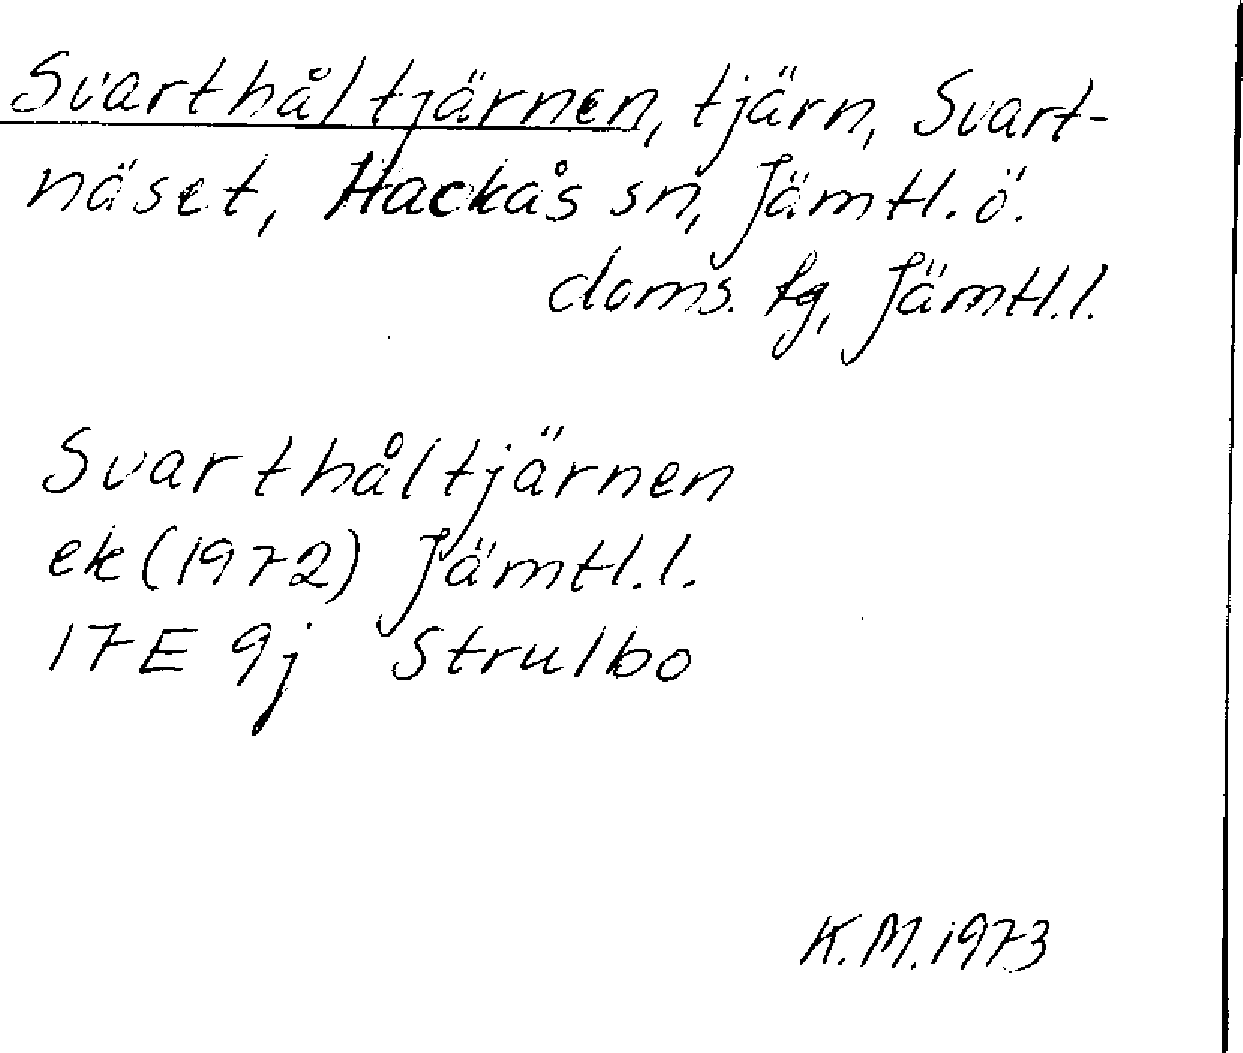 Svarthåltjärnen, tjärn, Svart-
näset, Hackås sn, Jämtl. ö.
doms. fg, Jämtl. l.
Svarthåltjärnen
ek (1972) Jämtl. l.
17E 9j Strulbo
K.M. 1973